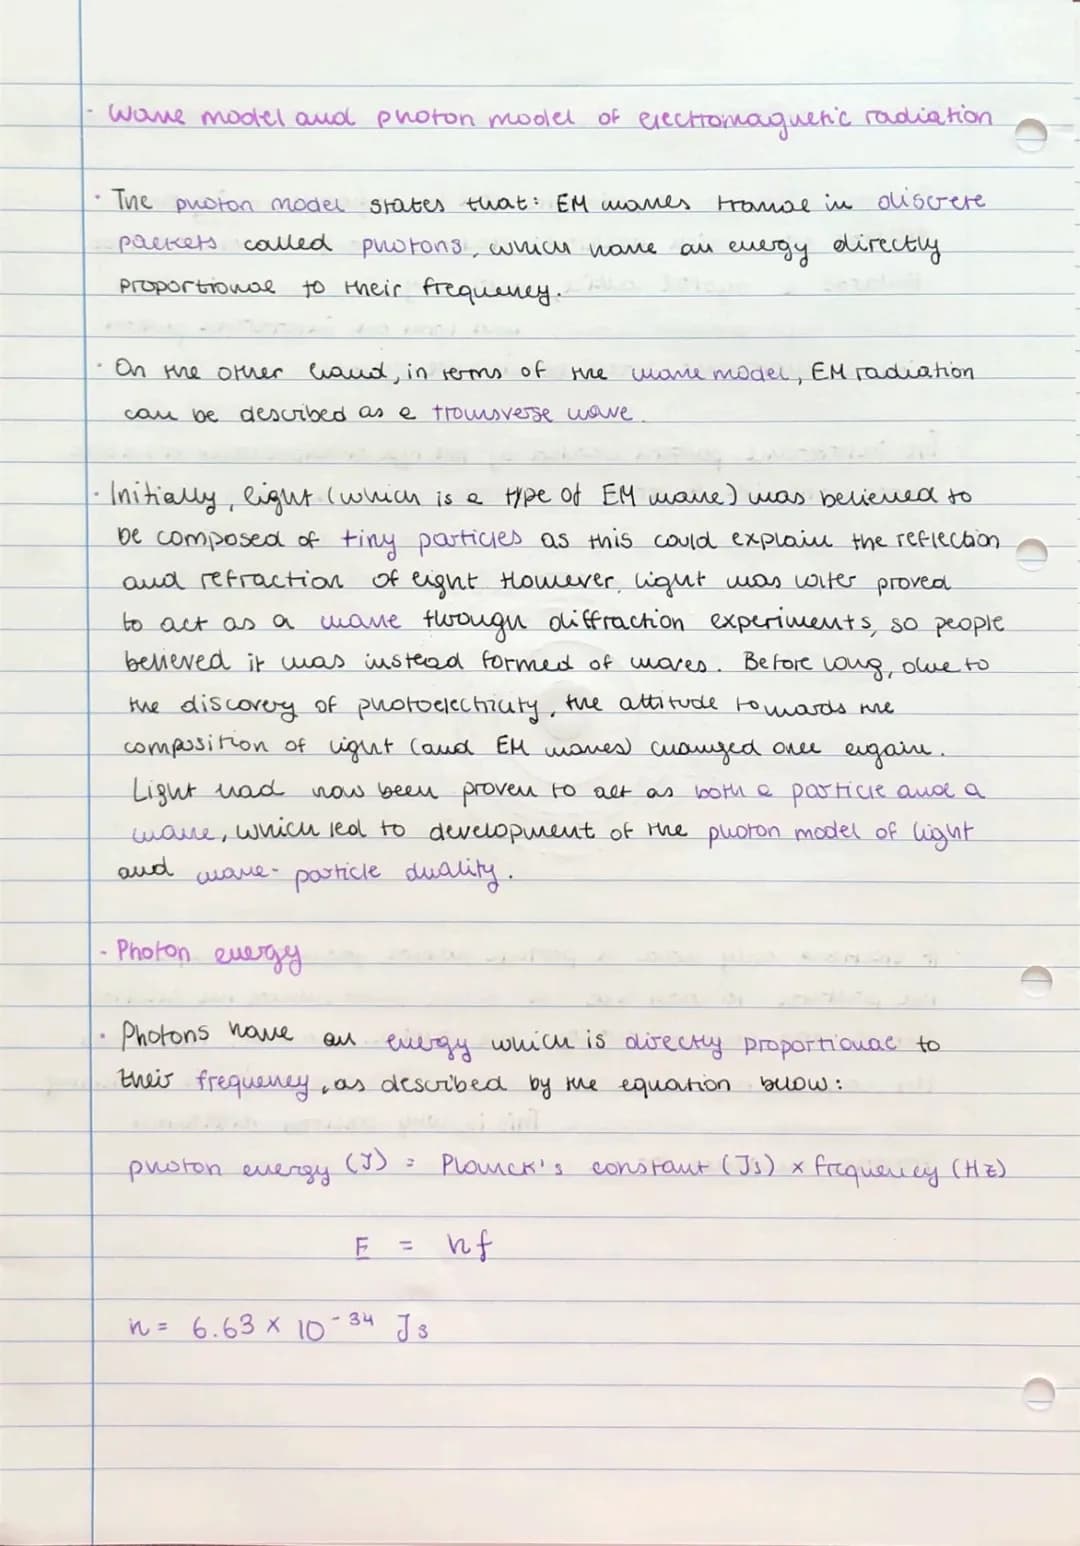 - Wave model and photon model of electromagnetic radiation
· The photon model states that: EM waves travel in discrete
packets called photons, which have an energy directly
proportional to their frequency.
· On the other hand, in terms of the wave model, EM radiation
can be described as a transverse wave.
· Initially, light (which is a type of EM wave) was believed to
be composed of tiny particles as this could explain the reflection
and refraction of light. However, light was later proved
to act as a wave through diffraction experiments, so people
believed it was instead formed of waves. Before long, due to
the discovery of photoelectricity, the attitude towards the
composition of light (and EM waves) changed once again.
Light had now been proven to act as both a particle and a
wave, which led to development of the photon model of light
and wave-particle duality.
- Photon energy
· Photons have an energy which is directly proportional to
their frequency, as described by the equation below:
photon energy (J) = Planck's constant (Js) × frequency (Hz)
E = hf
h = 6.63 × 10⁻³⁴ Js